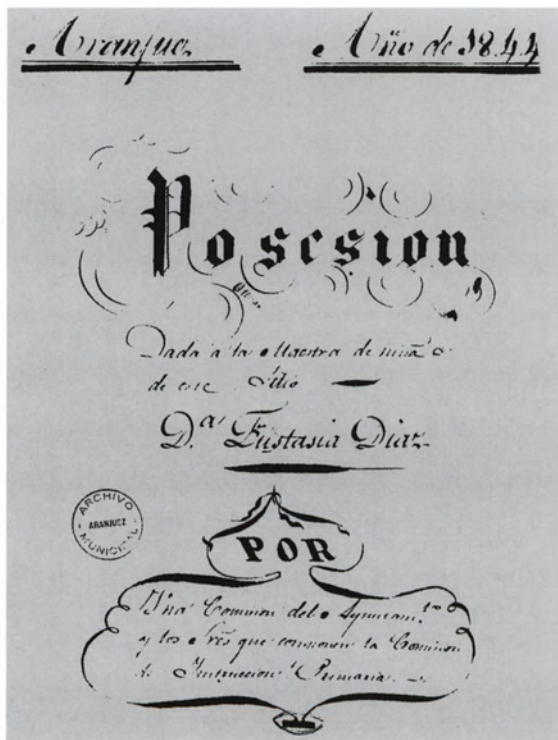 Aranjuez Año de 1844
Posesion
Dada a la Maestra de niñas
de este Sitio
D.ª Eustasia Diaz
ARCHIVO
ARANJUEZ
MUNICIPAL
POR
Una Comision del Ayuntam.to
y los Sres que componen la Comision
de Instruccion Primaria